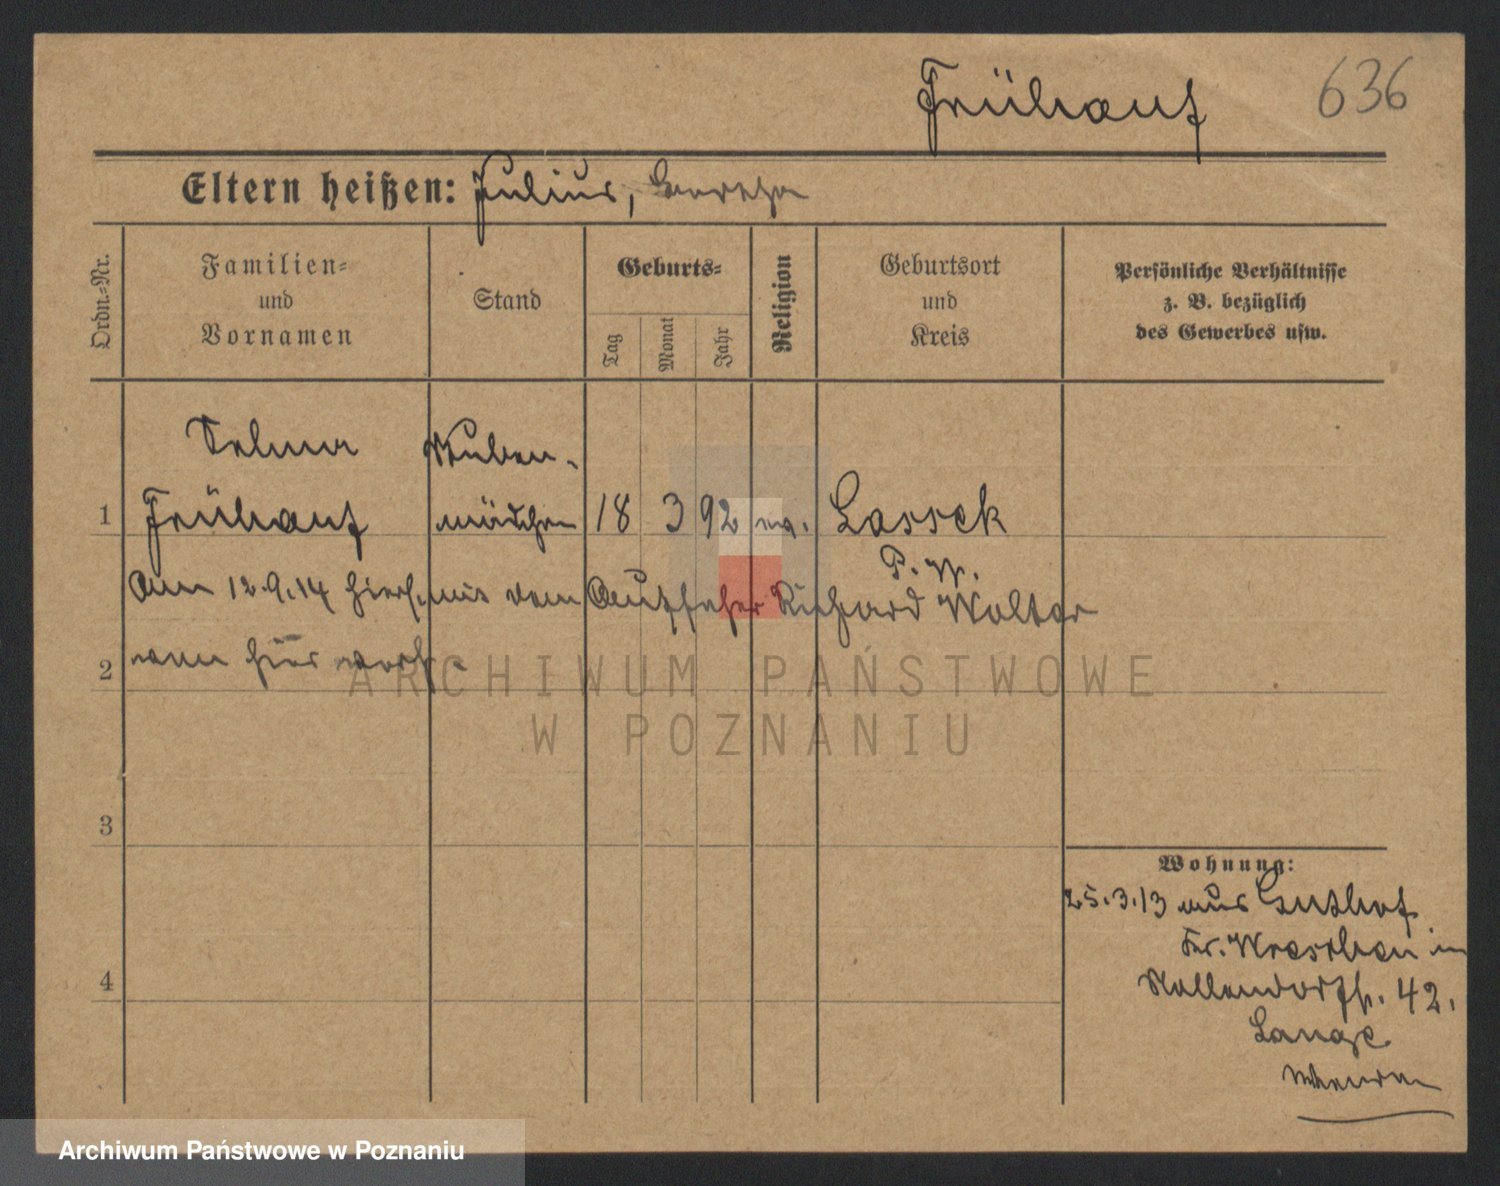 Frühauf
636
Eltern heißen: Julius,
Ordn.-Nr.
Familien-
und
Vornamen
Stand
Geburts-
Tag
Monat
Jahr
Religion
Geburtsort
und
Kreis
Persönliche Verhältnisse
z. B. bezüglich
des Gewerbes usw.
Selma Stuben-
1 Frühauf mädchen 18 3 92 ev. Lassek
P. W.
Am 12.9.14 hiers. mit dem Aufseher Richard Walter
2 hier
3
4
Wohnung:
25.3.13 aus Guthof
Kr. Wreschen in
Nollendorfstr. 42.
Lange
ARCHIWUM PAŃSTWOWE
W POZNANIU
Archiwum Państwowe w Poznaniu